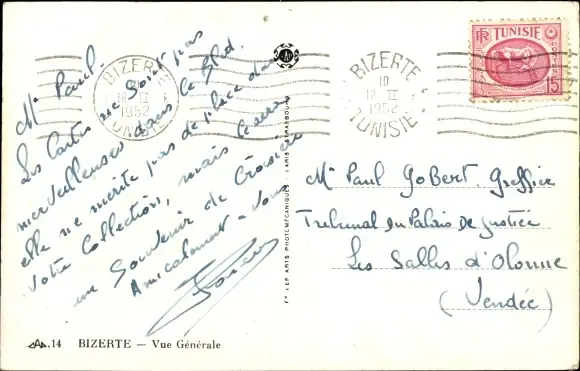 Mr Paul.
Les Cartes ne sont pas
merveilleuses dans le Sud.
elle ne mérite pas de place dans
votre Collection, mais ce sera
un Souvenir de Croisière
Amicalement à vous
BIZERTE
10
10 II
1952
TUNISIE
BIZERTE
10
10 II
1952
TUNISIE
RF TUNISIE
15F
Mr Paul GoBert, Greffier
Tribunal du Palais de Justice
Les Salles d'Olonne
(Vendée)
LES ARTS PHOTOMÉCANIQUES
PARIS STRASBOURG
14 BIZERTE — Vue Générale